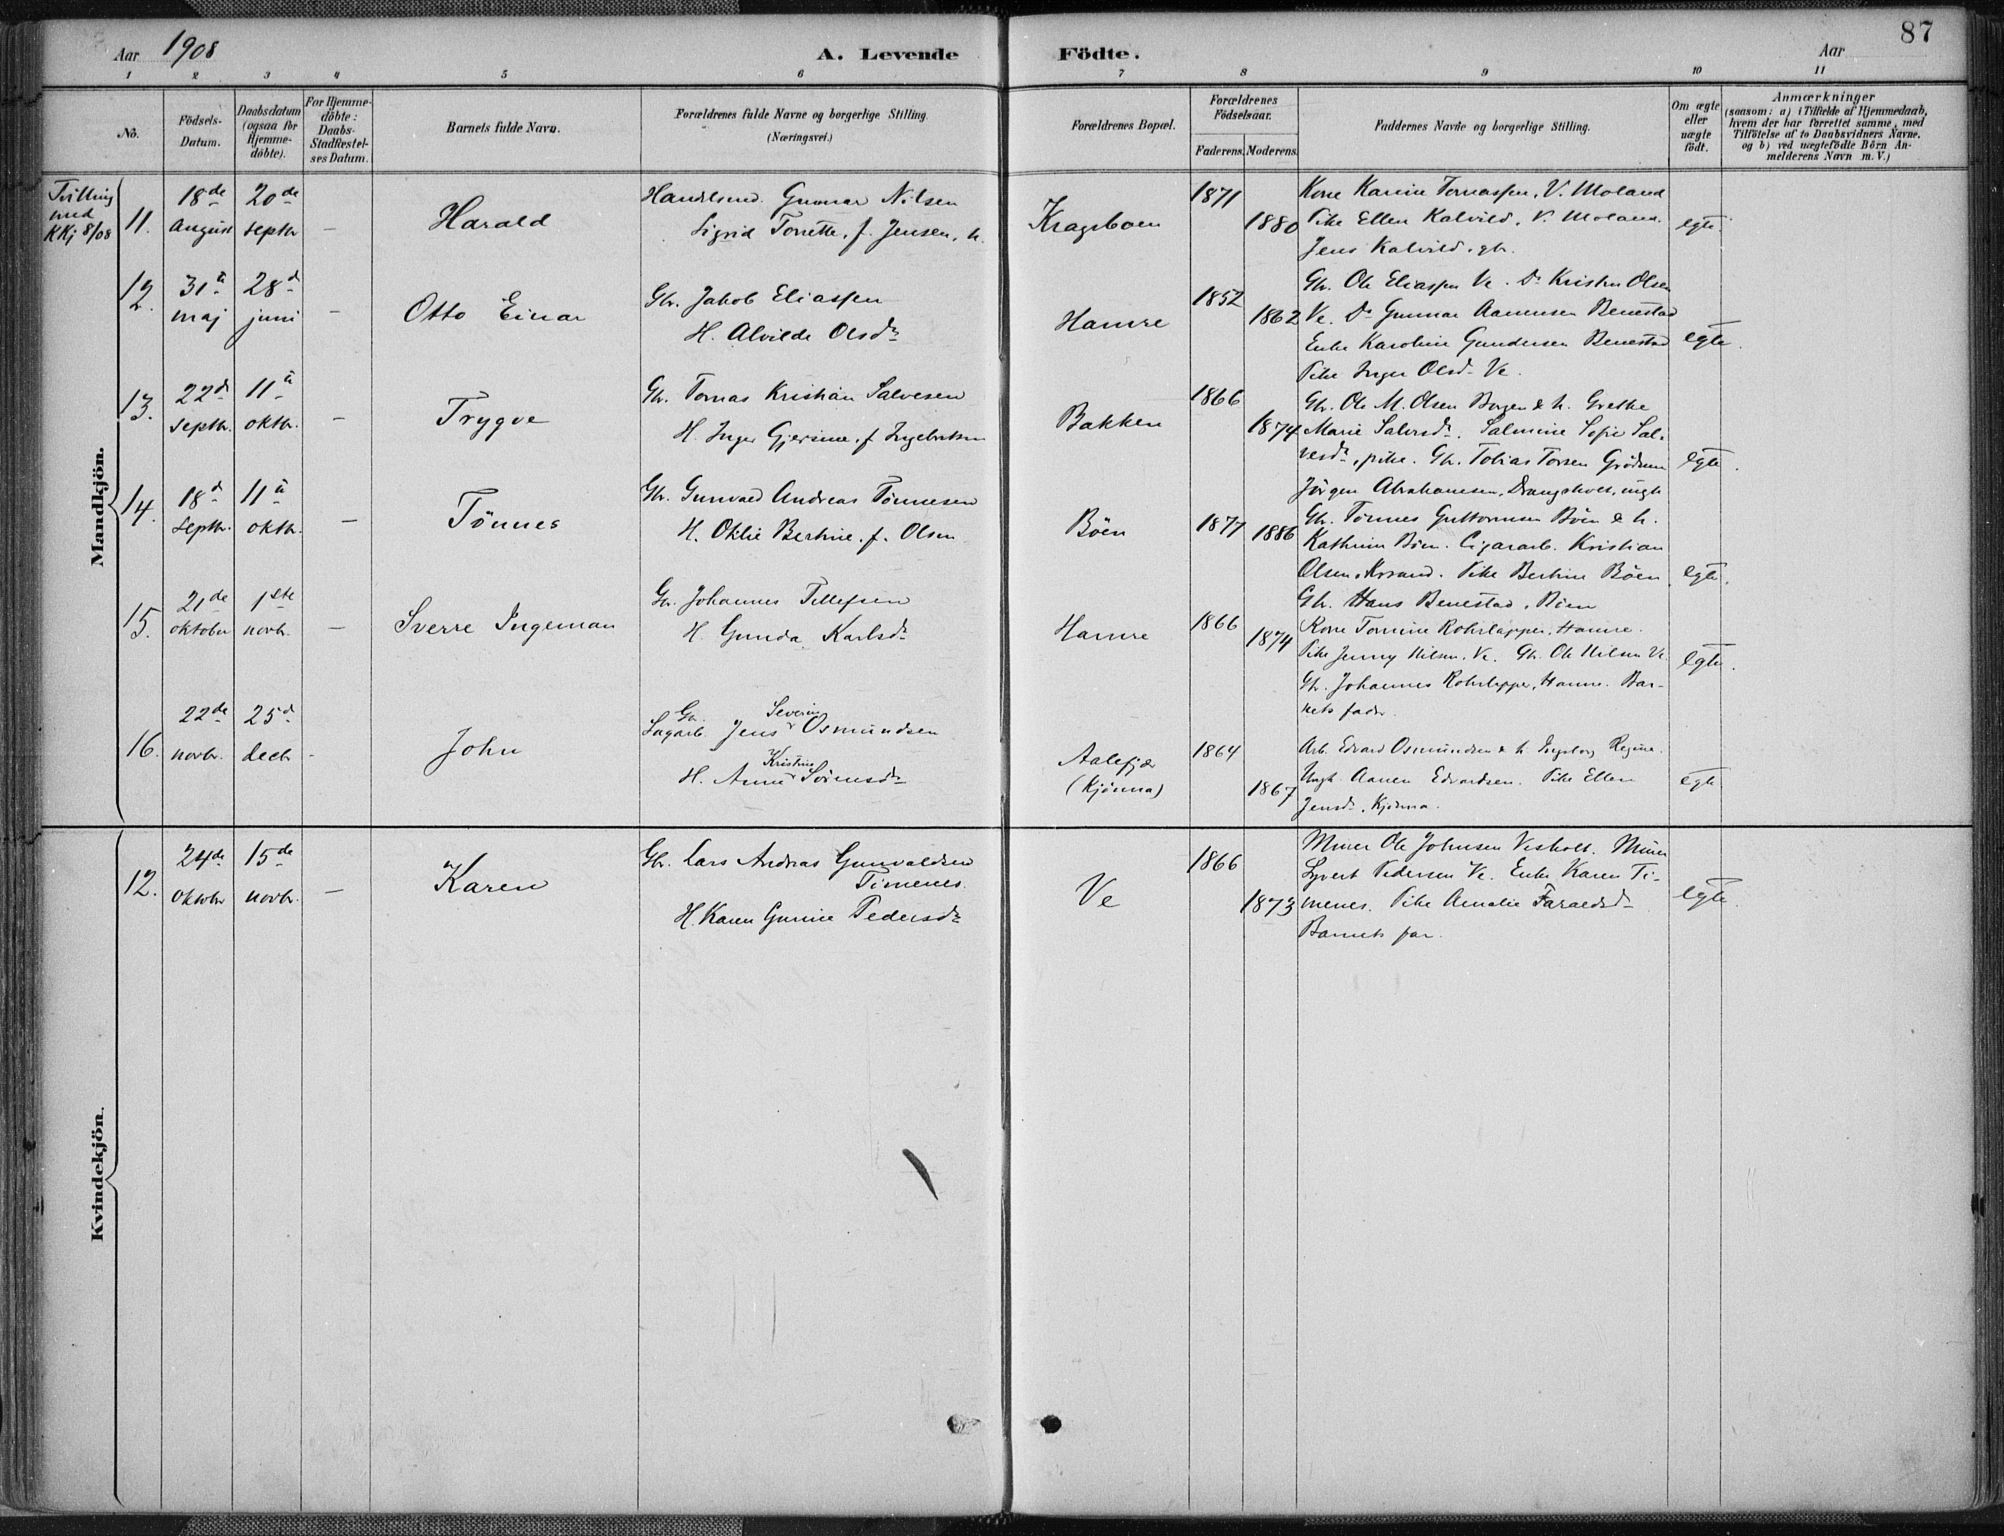 87
Aar 1908
A. Levende Födte.
Aar
1 2 3 4 5 6 7 8 9 10 11
No.
Födsels-
Datum.
Daabsdatum
(ogsaa for
Hjemme-
döbte).
For Hjemme-
döbte:
Daabs-
Stadfestel-
ses Datum.
Barnets fulde Navn.
Forældrenes fulde Navne og borgerlige Stilling.
(Næringsvei.)
Forældrenes Bopæl.
Forældrenes
Födselsaar.
Faderens. Moderens.
Faddernes Navne og borgerlige Stilling.
Om ægte
eller
uægte
födt.
Anmærkninger
(saasom: a) i Tilfælde af Hjemmedaab,
hvem der har forrettet samme, med
Tilföielse af to Daabsvidners Navne.
og b) ved uægtefödte Börn An-
melderens Navn m. V.)
Mandkjön.
Tvilling
med
KKj 8/08
11.
18de
august
20de
septbr
-
Harald
Handelsmd. Gunnar Nilsen
Sigrid Torette, f. Jensen, h.
Kragsboen
1871
1880
Kone Karine Tomassen, V. Moland
Pike Ellen Kalvild, V. Moland.
Jens Kalvild, gb.
egte.
12.
31te
maj
28d
juni
-
Otto Einar
Gbr. Jakob Eliassen
H. Alvilde Olsdr
Hamre
1852
1862
Gbr. Ole Eliassen Ve. Do Kristen Olsen
Ve. Do Gunnar Aanensen Benestad
Enke Karoline Gundersen Benestad
Pike Inger Olsdr Ve.
egte.
13.
22de
septbr.
11te
oktbr.
-
Trygve
Gbr. Tomas Kristian Salvesen
H. Inger Gjerine, f. Ingebretsen
Bakken
1866
1874
Gbr. Ole M. Olsen Borgen & h. Grethe
Marie Salvesdr. Salmine Sofie Sal-
vesdr, pike. Gbr. Tobias Torsen Grödum
Jörgen Abrahamsen, Drangsholt, ungk
egte.
14.
18d
septbr.
11te
oktbr.
-
Tönnes
Gbr. Gunvald Andreas Tönnesen
H. Oklie Bertine, f. Olsen
Böen
1877
1886
Gbr. Tönnes Guttormsen Böen & h.
Kathrine Böen. Cigararb. Kristian
Olsen, Krsand. Pike Bertine Böen
Gbr. Hans Benestad, Böen
egte.
15.
21de
oktober
1ste
novbr.
-
Sverre Ingeman
Gbr. Johannes Tellefsen
H. Gunda Karlsdr
Hamre
1866
1874
Kone Tomine Rohrlapper, Hamre.
Pike Jenny Nilsen, Ve. Gbr. Ole Nilsen Ve.
Gbr. Johannes Rohrlapper, Hamre. Bar-
nets fader.
egte.
16.
22de
novbr.
25d
decbr
-
John
Gbr. Severin
Sagarb. Jens Osmundsen
Kristine
H. Anne Sörensdr
Aalefjær
(Kjönna)
1864
1867
Arb. Edvard Osmundsen & h. Ingeborg Regine.
Ungk. Aanen Edvardsen. Pike Ellen
Jensdr, Kjönna.
egte
Kvindekjön.
12.
24de
oktobr
15de
novbr.
-
Karen
Gbr. Lars Andreas Gunvaldsen
Timenes.
H. Karen Gurine Pedersdr
Ve
1866
1873
Murer Ole Johnsen Vesholt. Murer
Syvert Pedersen Ve. Enke Karen Ti-
menes. Pike Amalie Faraldsdr
Barnets far.
egte.